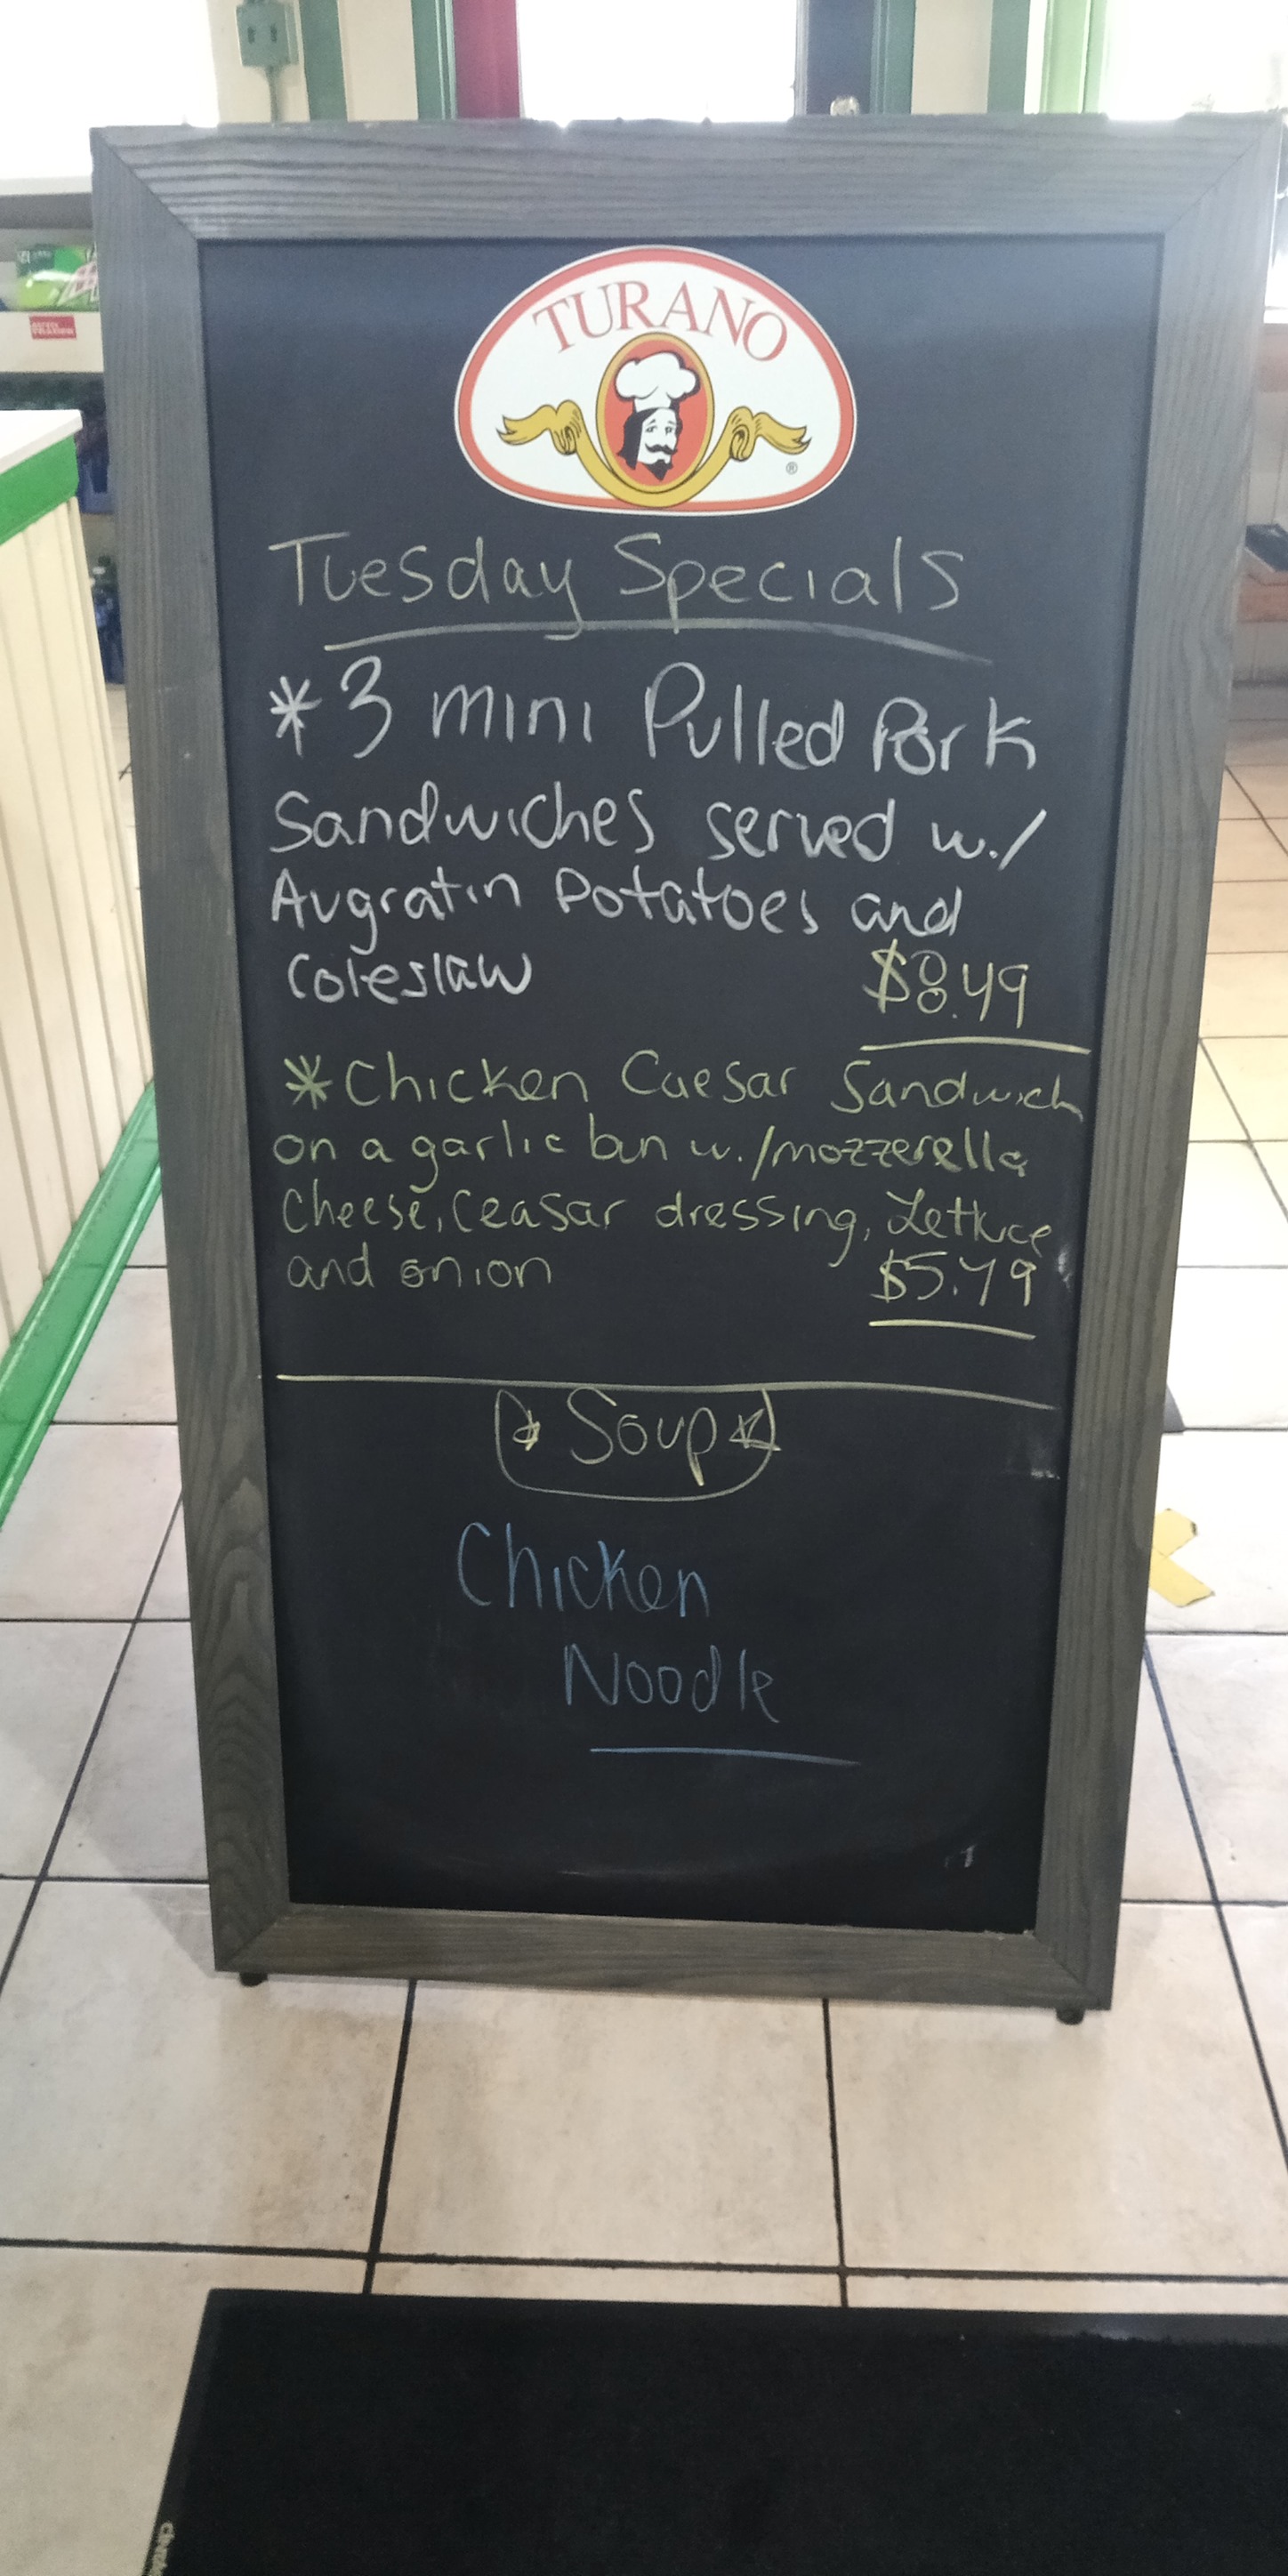 TURANO
®
Tuesday Specials
* 3 mini Pulled Pork
Sandwiches served w./
Augratin Potatoes and
Coleslaw $8.49
* Chicken Caesar Sandwich
on a garlic bun w./mozzerella
Cheese, Ceasar dressing, Lettuce
and onion $5.79
Soup
Chicken
Noodle